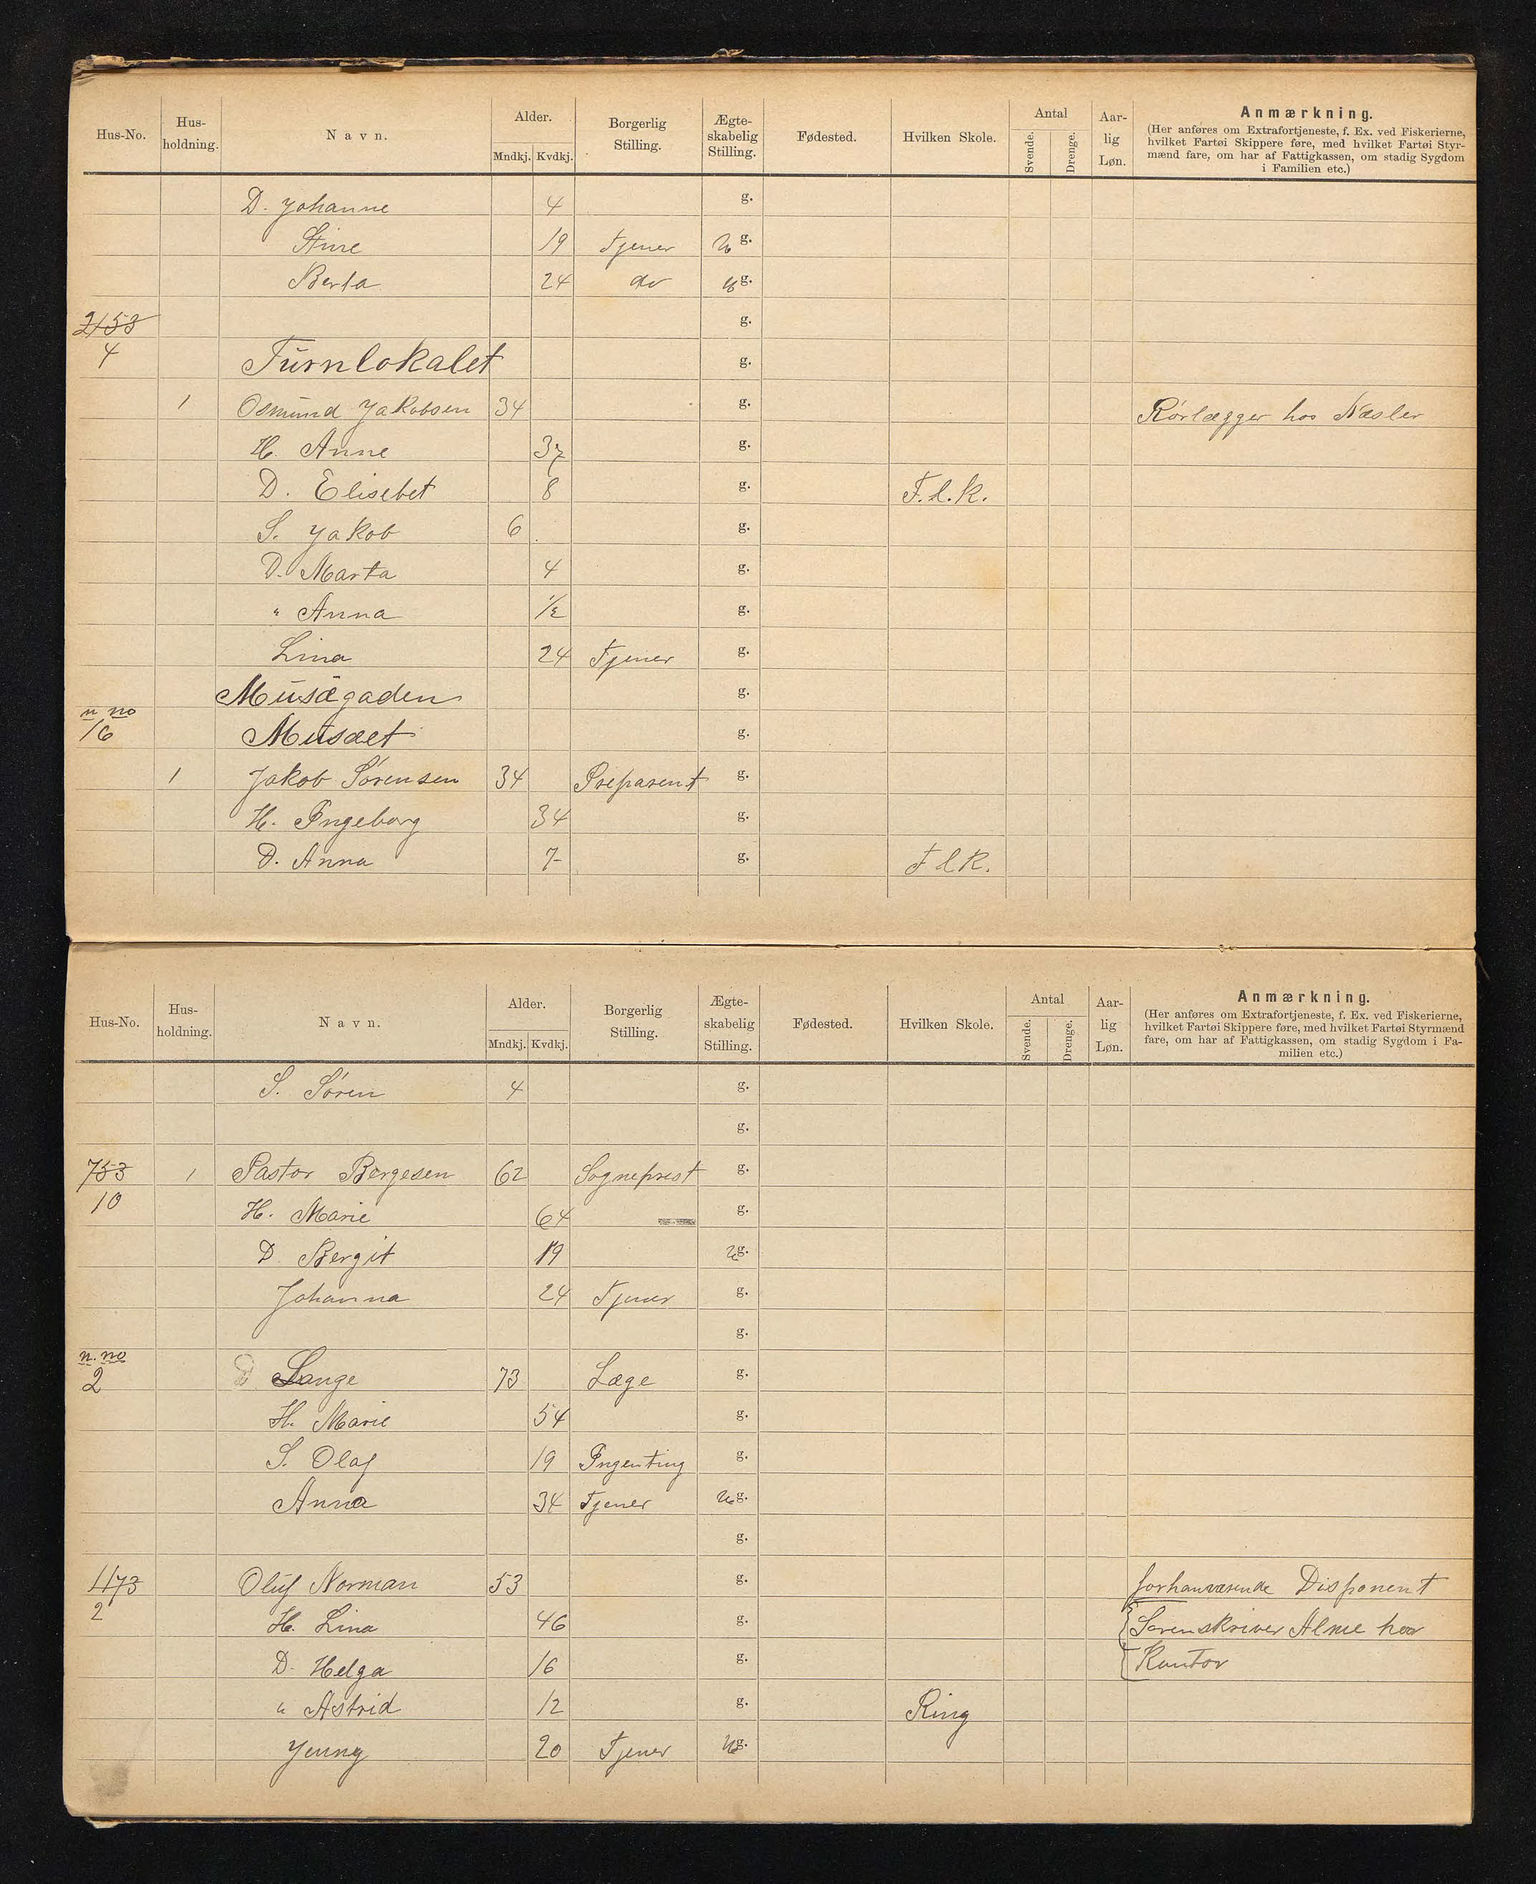 Hus-No. Hus-holdning. Navn. Alder. Mndkj. Kvdkj. Borgerlig Stilling. Ægte-skabelig Stilling. Fødested. Hvilken Skole. Antal Svende. Drenge. Aar-lig Løn. Anmærkning.
(Her anføres om Extrafortjeneste, f. Ex. ved Fiskerierne,
hvilket Fartøi Skippere føre, med hvilket Fartøi Styr-
mænd fare, om har af Fattigkassen, om stadig Sygdom
i Familien etc.)
D. Johanne 4 g.
Stine 19 Tjener Ug.
Berta 24 do ug.
2153 g.
4 Turnlokalet g.
1 Osmund Jakobsen 34 g. Rørlægger hos Næsler
H. Anne 37 g.
D. Elisebet 8 g. F.l.k.
S. Jakob 6 g.
D. Marta 4 g.
" Anna 1/2 g.
Lina 24 Tjener g.
Musægaden g.
n no
16 Musæet g.
1 Jakob Sørensen 34 Preparent g.
H. Ingeborg 34 g.
D. Anna 7 g. F l k.
Hus-No. Hus-holdning. Navn. Alder. Mndkj. Kvdkj. Borgerlig Stilling. Ægte-skabelig Stilling. Fødested. Hvilken Skole. Antal Svende. Drenge. Aar-lig Løn. Anmærkning.
(Her anføres om Extrafortjeneste, f. Ex. ved Fiskerierne,
hvilket Fartøi Skippere føre, med hvilket Fartøi Styrmænd
fare, om har af Fattigkassen, om stadig Sygdom i Fa-
milien etc.)
S. Søren 4 g.
g.
753 1 Pastor Børgesen 62 Sogneprest g.
10 H. Marie 64 g.
D Bergit 19 ug.
Johanna 24 Tjener g.
g.
n. no
2 Lange 73 Læge g.
H. Marie 54 g.
S. Olaf 19 Ingenting g.
Anna 34 Tjener Ug.
g.
1173 Oluf Norman 53 g. forhanværende Disponent
2 H. Lina 46 g. Sorenskriver Alme har
D. Helga 16 g. Kontor
" Astrid 12 g. Ring
Jenny 20 Tjener Ug.